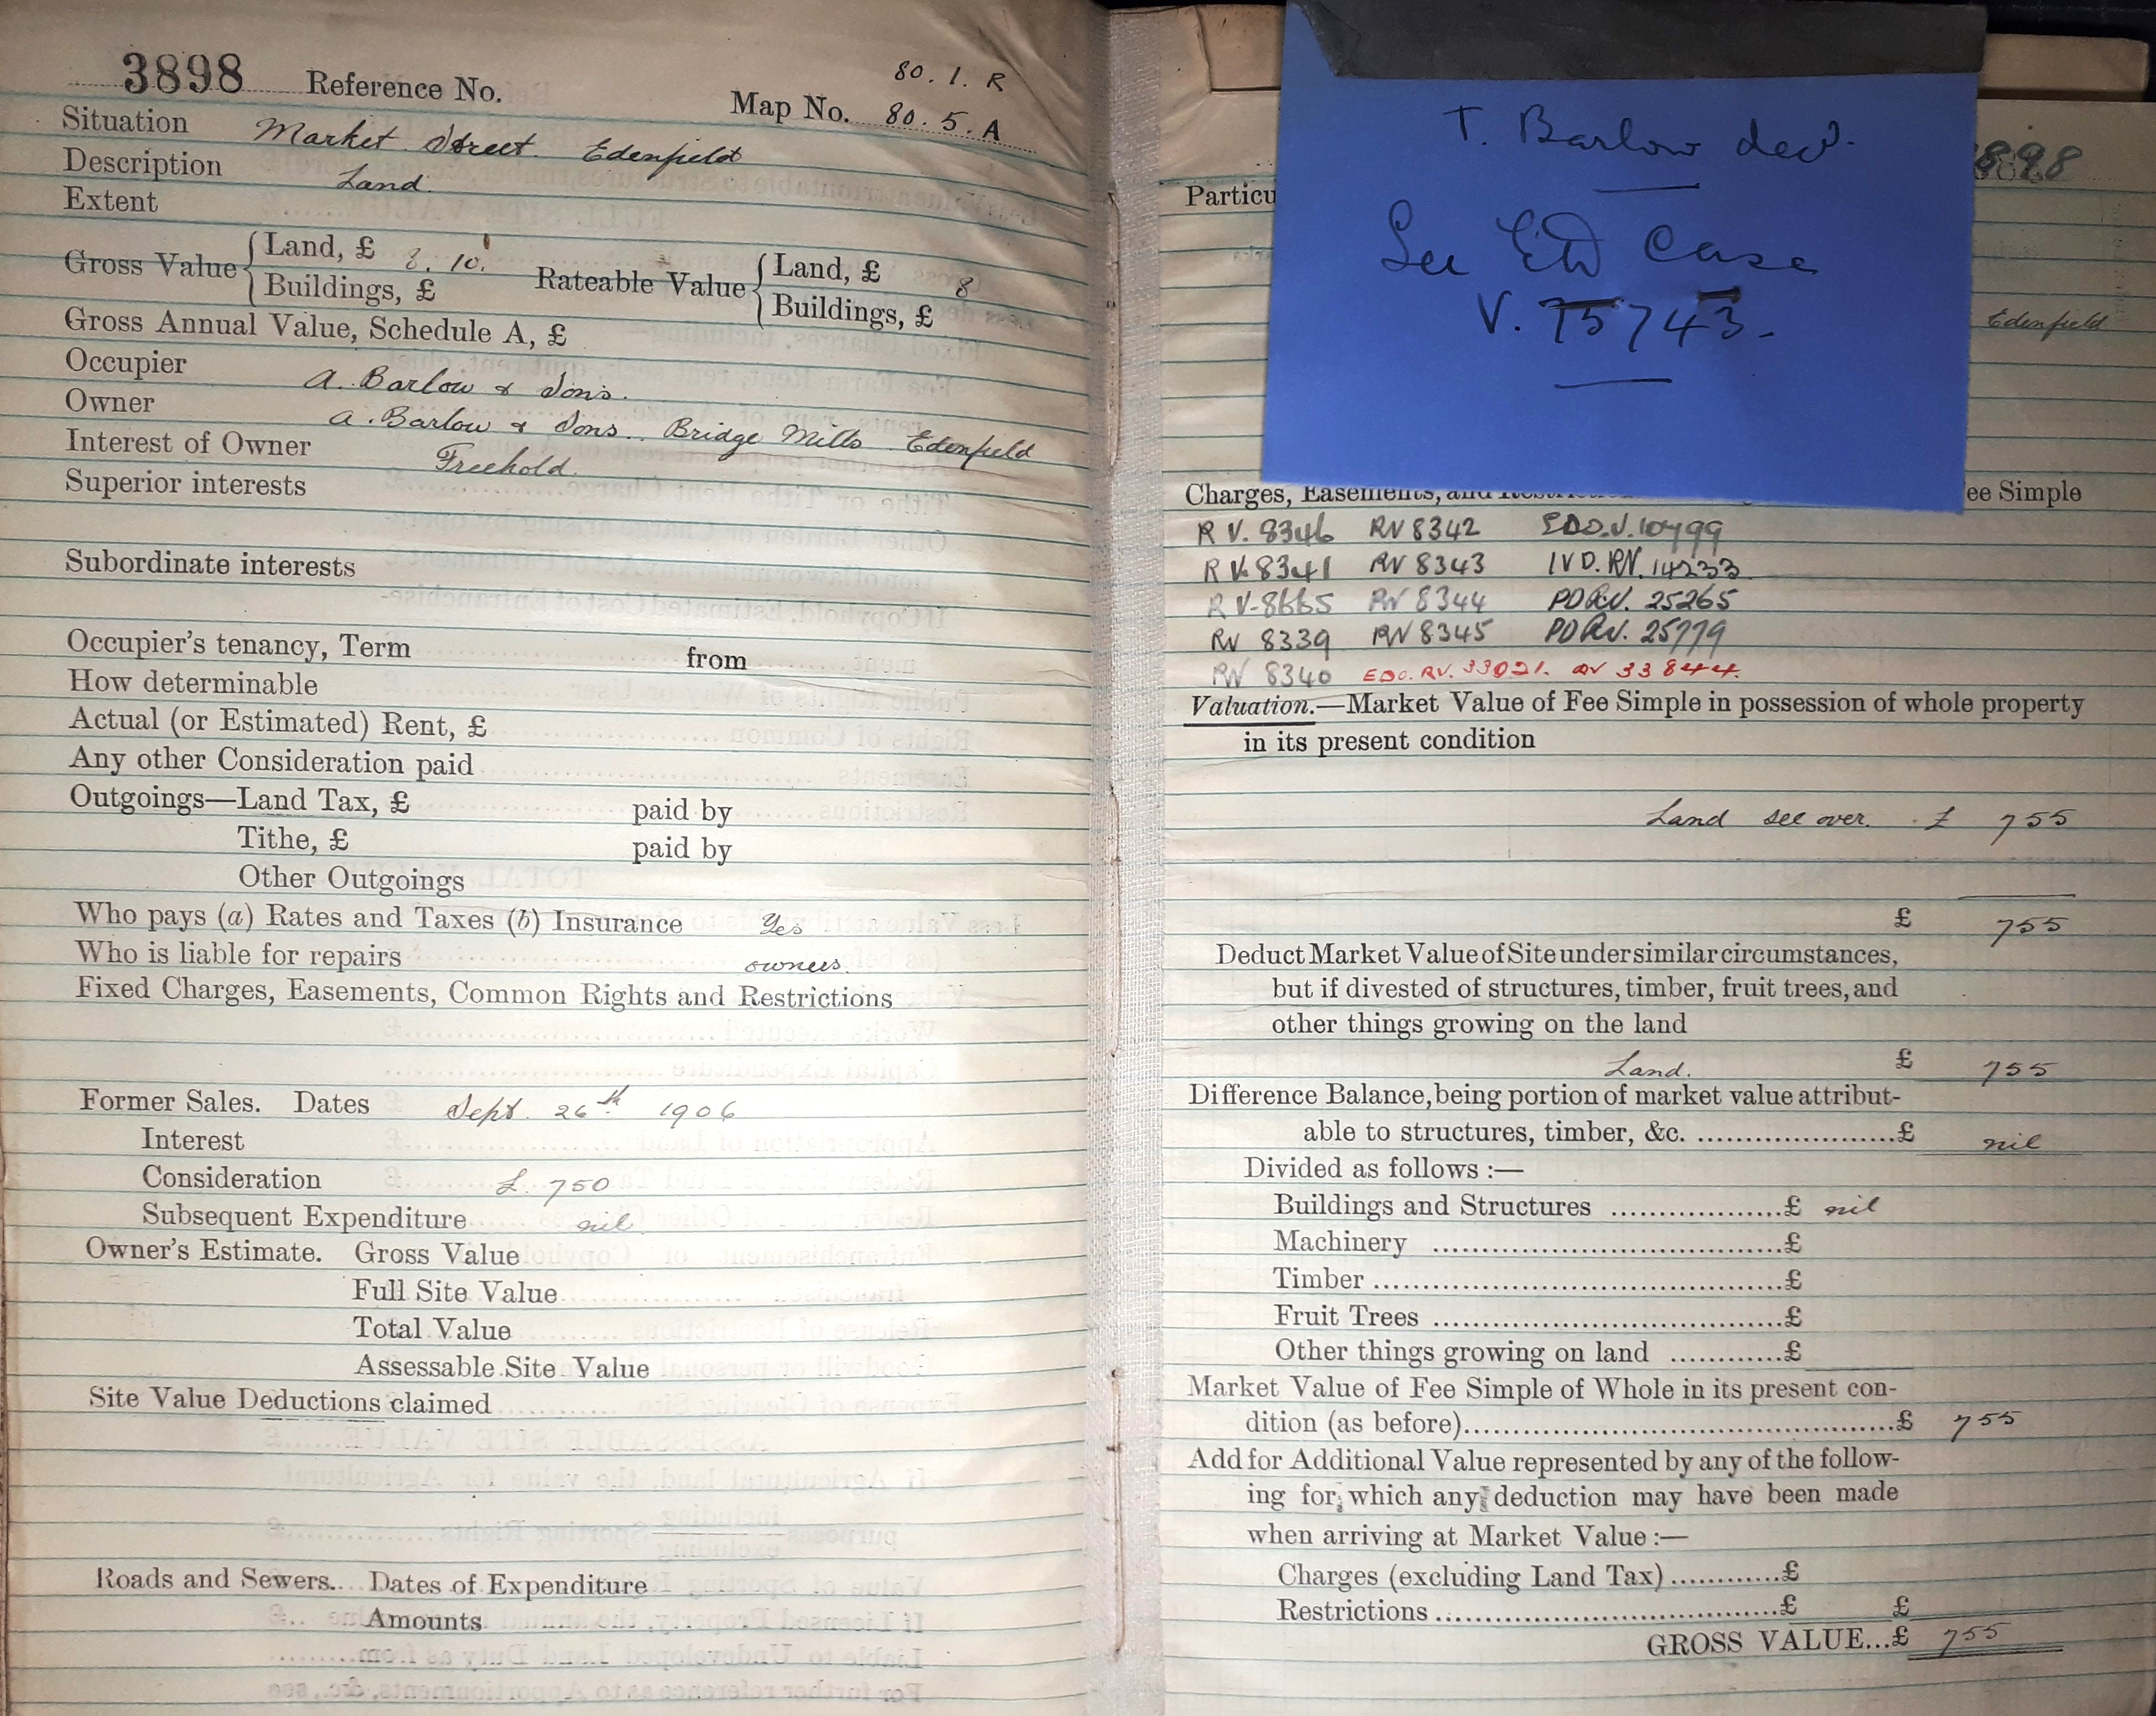 3898 Reference No.
80. 1. R
Map No. 80. 5. A
Situation Market Street. Edenfield
Description Land.
Extent
Gross Value { Land, £ 8. 10.
Buildings, £
Rateable Value { Land, £ 8
Buildings, £
Gross Annual Value, Schedule A, £
Occupier A. Barlow & Sons.
Owner A. Barlow & Sons. Bridge Mills Edenfield
Interest of Owner Freehold.
Superior interests
Subordinate interests
Occupier's tenancy, Term from
How determinable
Actual (or Estimated) Rent, £
Any other Consideration paid
Outgoings—Land Tax, £ paid by
Tithe, £ paid by
Other Outgoings
Who pays (a) Rates and Taxes (b) Insurance Yes
Who is liable for repairs owners.
Fixed Charges, Easements, Common Rights and Restrictions
Former Sales. Dates Sept. 26th 1906
Interest
Consideration £ 750
Subsequent Expenditure nil
Owner's Estimate. Gross Value
Full Site Value
Total Value
Assessable Site Value
Site Value Deductions claimed
Roads and Sewers. Dates of Expenditure
Amounts
T. Barlow decd.
See Case
V. 75743.
898
Particu
Edenfield
Charges, Easements, and ee Simple
R V. 8346 RV 8342 EDO.V. 10799
R V 8341 RV 8343 IVD. RV. 14233
R V-8665 RV 8344 PDRV. 25265
RV 8339 RV 8345 PDRV. 25779
RV 8340 EDO. RV. 33021. RV 33844.
Valuation.—Market Value of Fee Simple in possession of whole property
in its present condition
Land see over. £ 755
£ 755
Deduct Market Value of Site under similar circumstances,
but if divested of structures, timber, fruit trees, and
other things growing on the land
Land. £ 755
Difference Balance, being portion of market value attribut-
able to structures, timber, &c. ......................£ nil
Divided as follows :—
Buildings and Structures ..................£ nil
Machinery ....................................£
Timber ..........................................£
Fruit Trees ....................................£
Other things growing on land ............£
Market Value of Fee Simple of Whole in its present con-
dition (as before)..............................................£ 755
Add for Additional Value represented by any of the follow-
ing for which any deduction may have been made
when arriving at Market Value :—
Charges (excluding Land Tax) ............£
Restrictions ....................................£ £
GROSS VALUE...£ 755